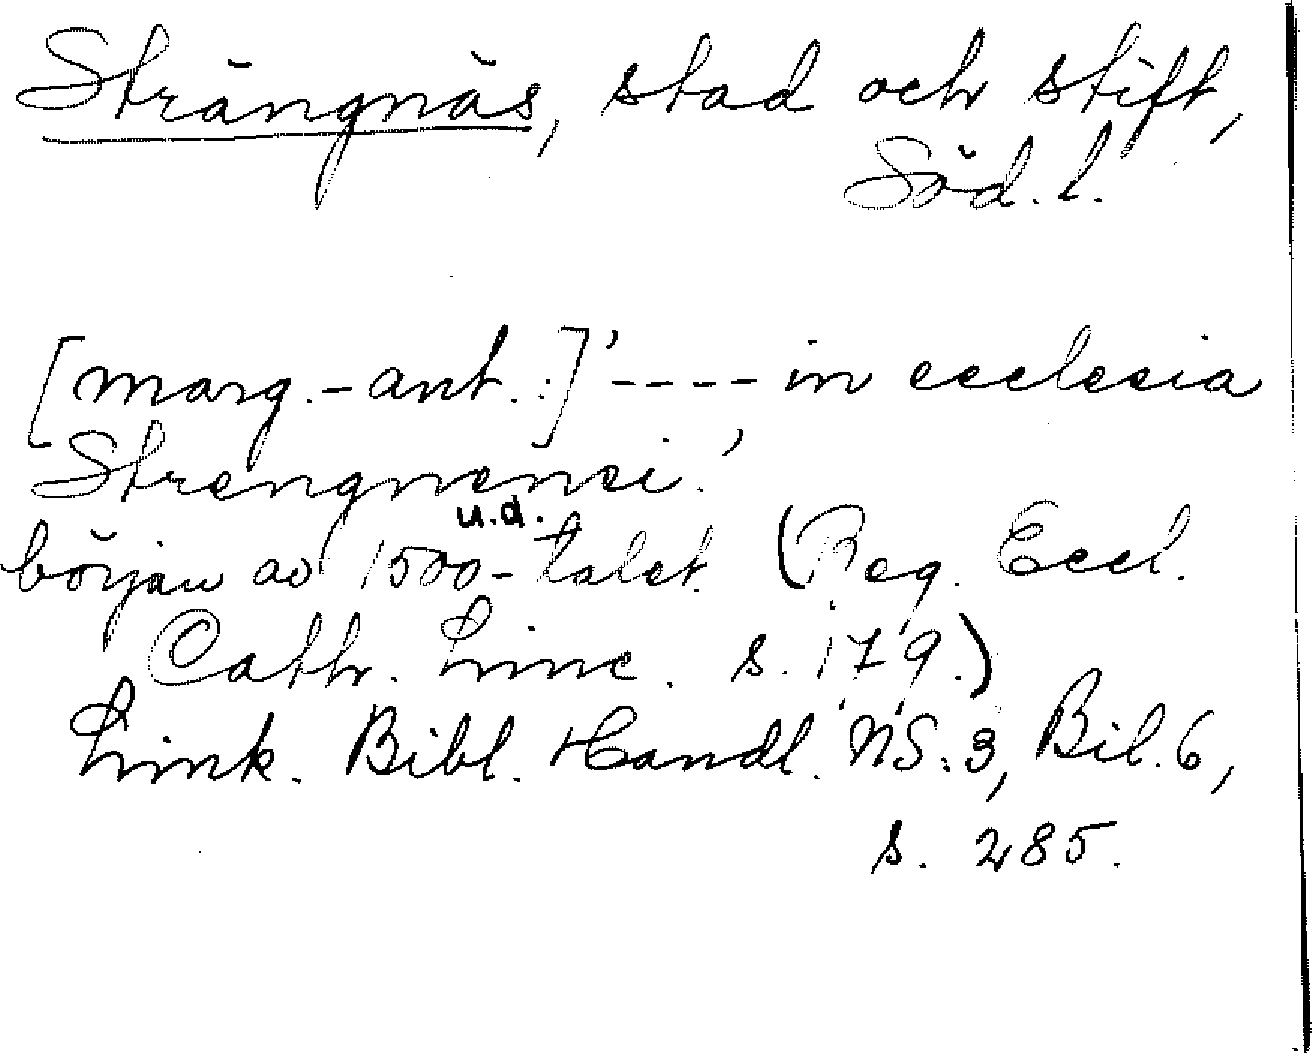 Strängnäs, stad och stift,
Söd. l.
[marg.-ant.:] '---- in ecclesia
Strengnensi.'
u.d.
början av 1500-talet (Reg. Eccl.
Cath. Linc. s. 179.)
Link. Bibl. Handl. NS:3, Bil. 6,
s. 285.